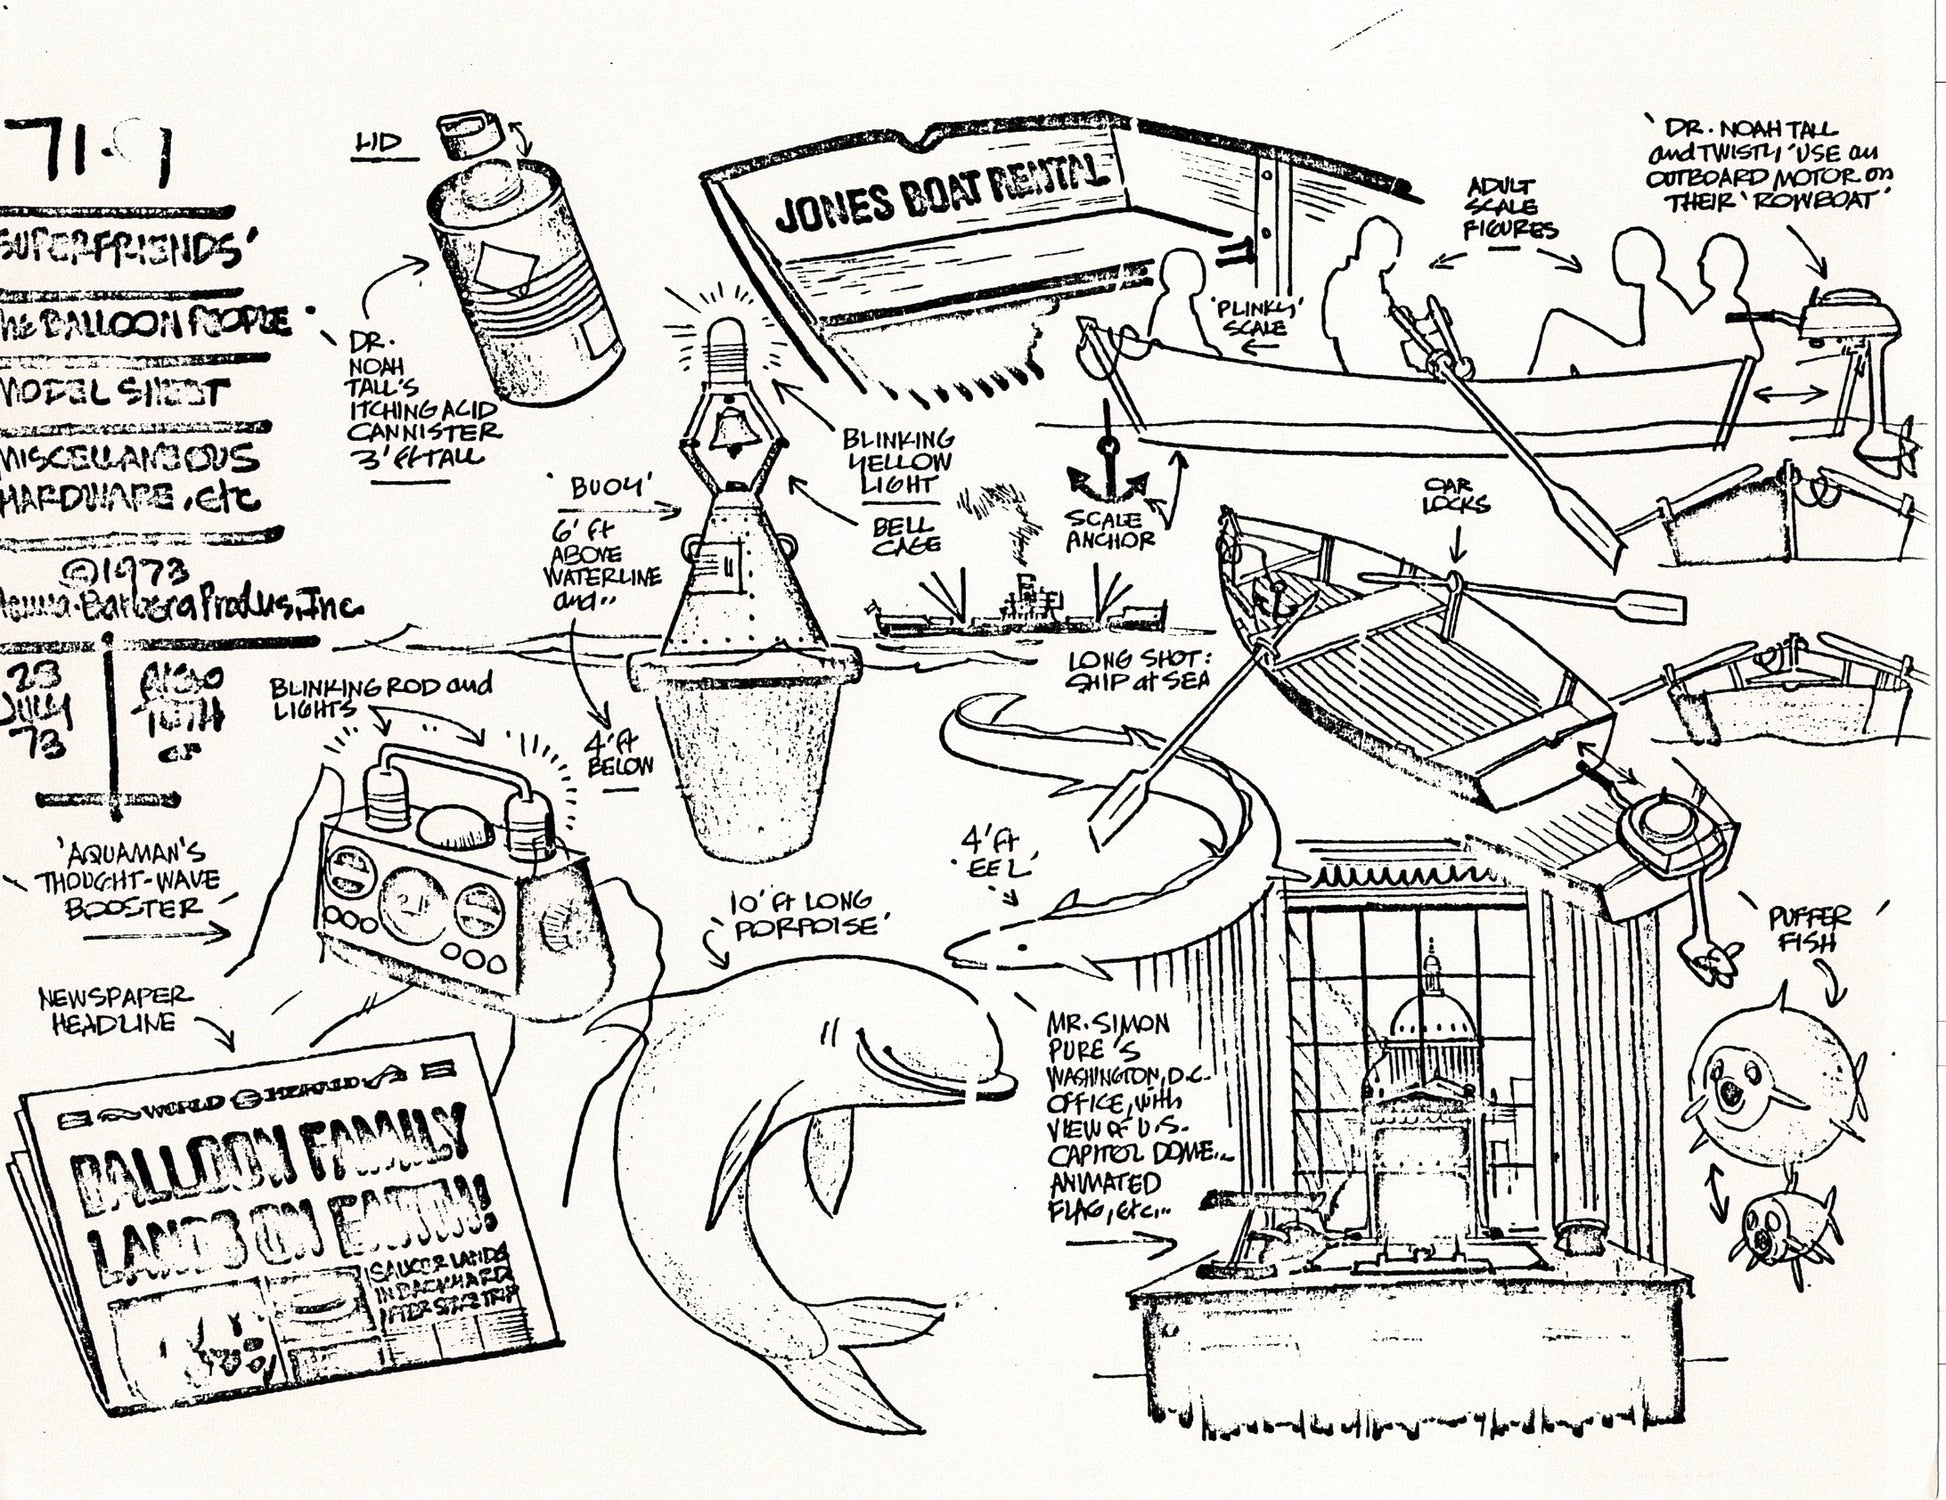 71-9
SUPERFRIENDS'
The BALLOON PEOPLE'
MODEL SHEET
MISCELLANEOUS
HARDWARE, etc
©1973
Hanna-Barbera Produs, Inc.
23
JULY
73
LID
DR.
NOAH
TALL'S
ITCHING ACID
CANNISTER
3' ft TALL
JONES BOAT RENTAL
'PLINKY'
SCALE
ADULT
SCALE
FIGURES
'DR. NOAH TALL
and TWISTY' USE an
OUTBOARD MOTOR on
THEIR 'ROWBOAT'
BLINKING
YELLOW
LIGHT
BELL
CAGE
'BUOY'
6' ft
ABOVE
WATERLINE
and..
4' ft
BELOW
SCALE
ANCHOR
OAR
LOCKS
LONG SHOT:
SHIP at SEA
BLINKING ROD and
LIGHTS
'AQUAMAN'S
THOUGHT-WAVE
BOOSTER'
4' ft
'EEL'
10' ft LONG
PORPOISE'
'PUFFER
FISH'
NEWSPAPER
HEADLINE
WORLD HERALD
BALLOON FAMILY
LANDS ON EARTH!
SAUCER LANDS
IN BACKYARD
AFTER SPACE TRIP
MR. SIMON
PURE'S
WASHINGTON, D.C.
OFFICE, with
VIEW of U.S.
CAPITOL DOME...
ANIMATED
FLAG, etc...